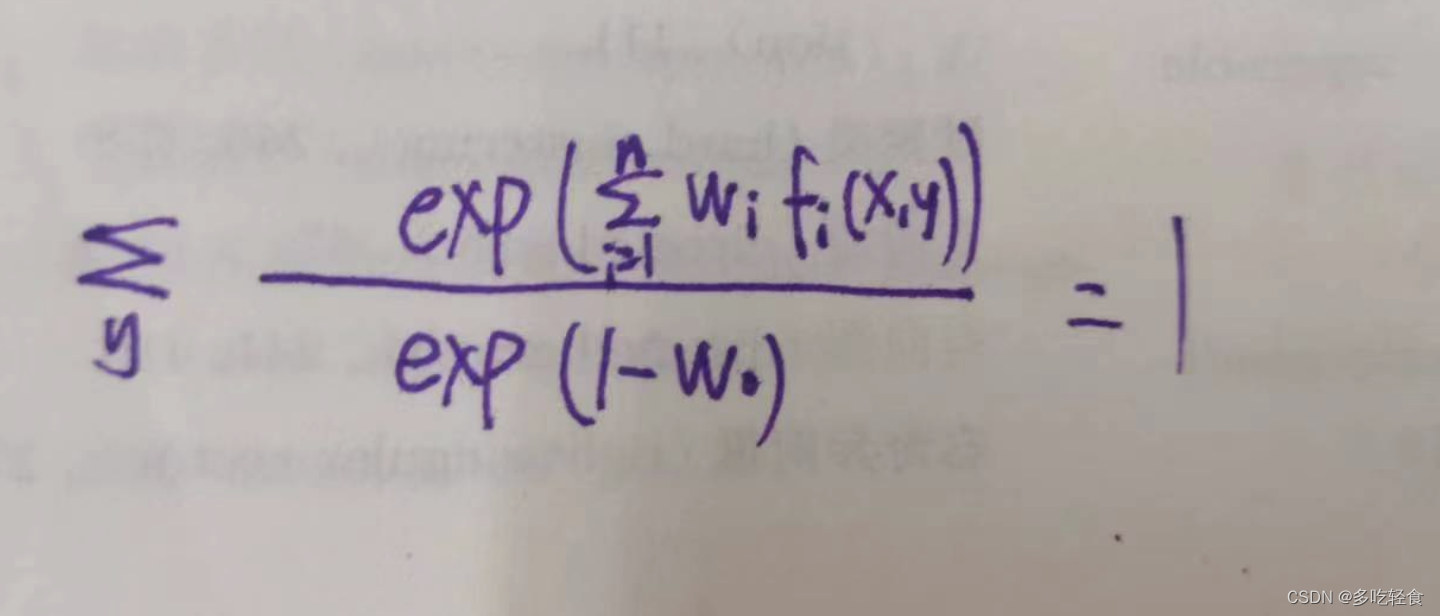 \sum_{y} \frac{\exp\left(\sum_{i=1}^{n} w_i f_i(x,y)\right)}{\exp(1-w_0)} = 1
CSDN @多吃轻食